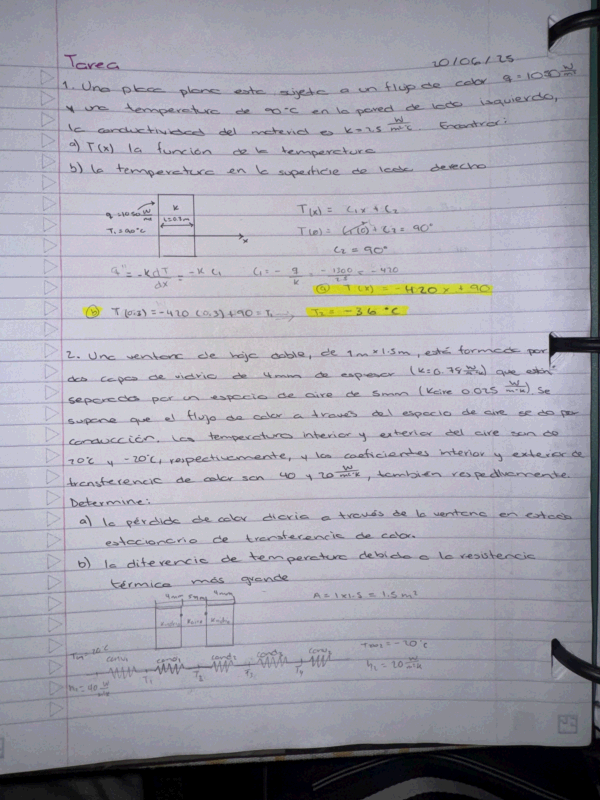 Tarea 20/06/25
1. Una placa plana esta sujeta a un flujo de calor q=1050 W/m²
y una temperatura de 90°C en la pared de lado izquierdo,
la conductividad del material es k=2.5 W/m·°C. Encontrar:
a) T(x) la función de la temperatura
b) la temperatura en la superficie de lado derecho
q=1050 W/m²
T₁=90°C
k
L=0.3m
x
T(x) = C₁x + C₂
T(0) = C₁(0) + C₂ = 90°
C₂ = 90°
q" = -k dT/dx = -k C₁ C₁ = - q/k = = -420
a) T(x) = -420x + 90
b) T(0.3) = -420(0.3)+90 = T₂ T₂ = -36 °C
2. Una ventana de hoja doble, de 1m x 1.5m, está formada por
dos capas de vidrio de 4mm de espesor (k=0.78 W/m·k) que están
separadas por un espacio de aire de 5mm (kaire 0.025 W/m·k) Se
supone que el flujo de calor a través del espacio de aire se da por
conducción. Las temperatura interior y exterior del aire son de
20°C y -20°C, respectivamente, y los coeficientes interior y exterior de
transferencia de calor son 40 y 20 W/m²·k, también respectivamente.
Determine:
a) la pérdida de calor diaria a través de la ventana en estado
estacionario de transferencia de calor.
b) la diferencia de temperatura debido a la resistencia
térmica más grande
4mm 5mm 4mm
A = 1x1.5 = 1.5 m²
T∞₁=20°C
T∞₂=-20°C
h₁=40 W/m²·k
T₁ T₂ T₃ T₄
h₂=20 W/m²·k